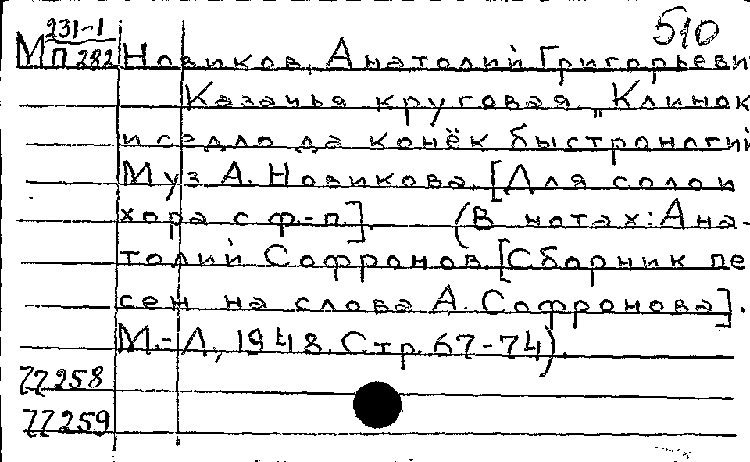 510
231-1
Мп 282 Новиков, Анатолий Григорьеви
Казачья круговая „Клинок
и седло да конёк быстроногий
Муз А. Новикова. [Для соло и
хора с ф-п]. (В нотах: Ана-
толий Софронов. [Сборник пе
сен на слова А. Софронова].
М.-Л, 1948. Стр. 67-74).
77258
77259